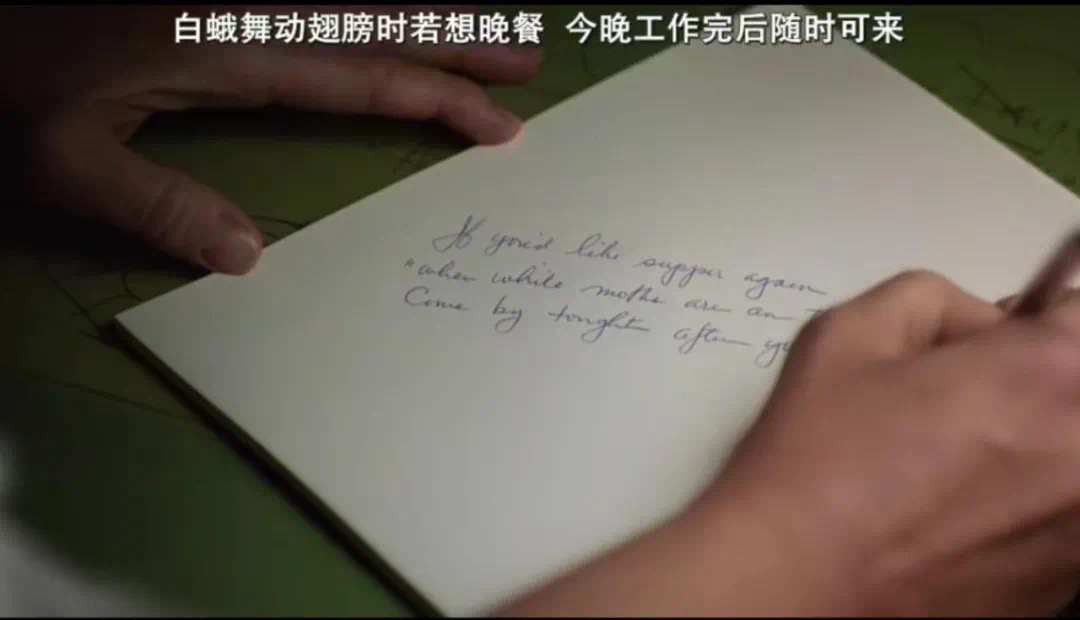 白蛾舞动翅膀时若想晚餐 今晚工作完后随时可来
If you'd like supper again
"when white moths are on
Come by tonight after